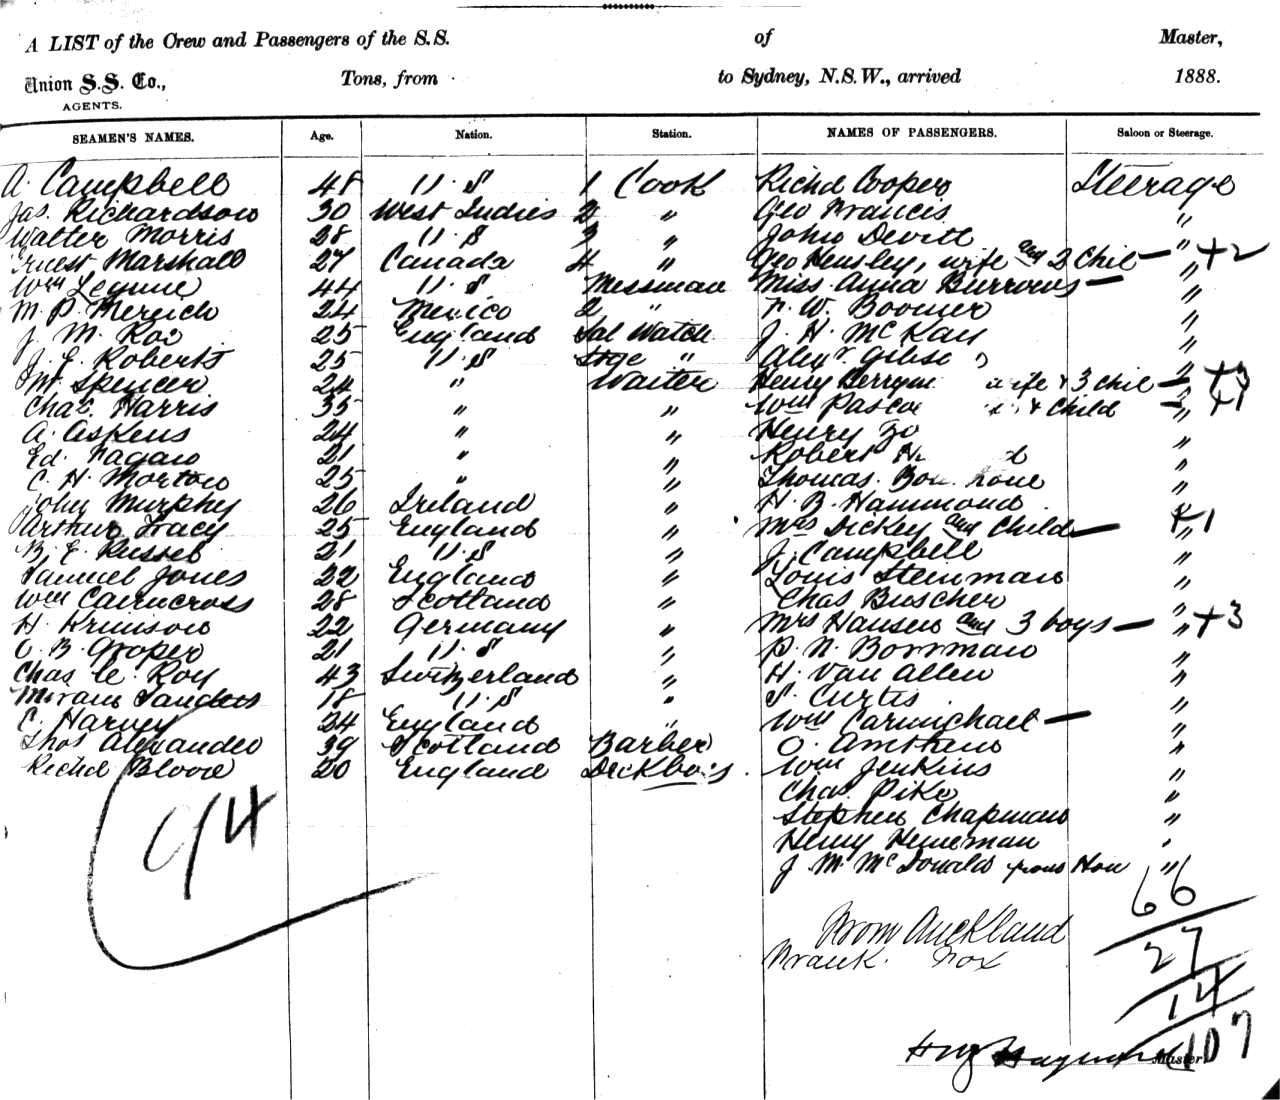 A LIST of the Crew and Passengers of the S.S. of Master,
Union S.S. Co., Tons, from to Sydney, N.S.W., arrived 1888.
AGENTS.
SEAMEN'S NAMES. Age. Nation. Station. NAMES OF PASSENGERS. Saloon or Steerage.
A. Campbell 48 U.S 1 Cook Richd Cooper Steerage
Jas. Richardson 30 West Indies 2 " Geo Francis "
Walter Morris 28 U.S 3 " John Devitt "
Ernest Marshall 27 Canada 4 " Geo Hensley, wife and 2 Chil — " +2
Wm Leynne 44 U.S Messman Miss Anna Burrows — "
M. P. 24 Mexico 2 " F. W. Boomer "
J. M. Ros 25 England Sal Watch J. H. McKay "
J. E. Roberts 25 U.S Stge " Alexr. Gibso "
Spencer 24 " Waiter Henry wife & 3 chil — " +3
Chas. Harris 35 " " Wm Pascoe & Child — " +1
A. Askens 24 " " Henry "
Ed. Fagan 21 " " Robert "
C. H. Morton 25 " " Thomas "
John Murphy 26 Ireland " H. B. Hammond "
Arthur Tracy 25 England " Mrs Dickey and Child — " +1
B. E. Russel 21 U.S " J. Campbell "
Samuel Jones 22 England " Louis Steinman "
Wm Cairncross 28 Scotland " Chas Buscher "
H. Krimson 22 Germany " Mrs Hansen and 3 boys — " +3
C. B. Groper 21 U.S " P. N. Borrman "
Chas Le Roy 43 Switzerland " H. Van Allen "
Miram Sanders 18 U.S " S. Curtis "
C. Harvey 24 England " Wm Carmichael — "
Thos Alexander 39 Scotland Barber O. Amthens "
Richd Blood 20 England Deckboy. Wm Jenkins "
Chas. Pike "
Stephen Chapman "
94 Henry Heineman "
J. M. McDonald from Hon "
66
From Auckland
Frank Fox 27
14
107
Master.